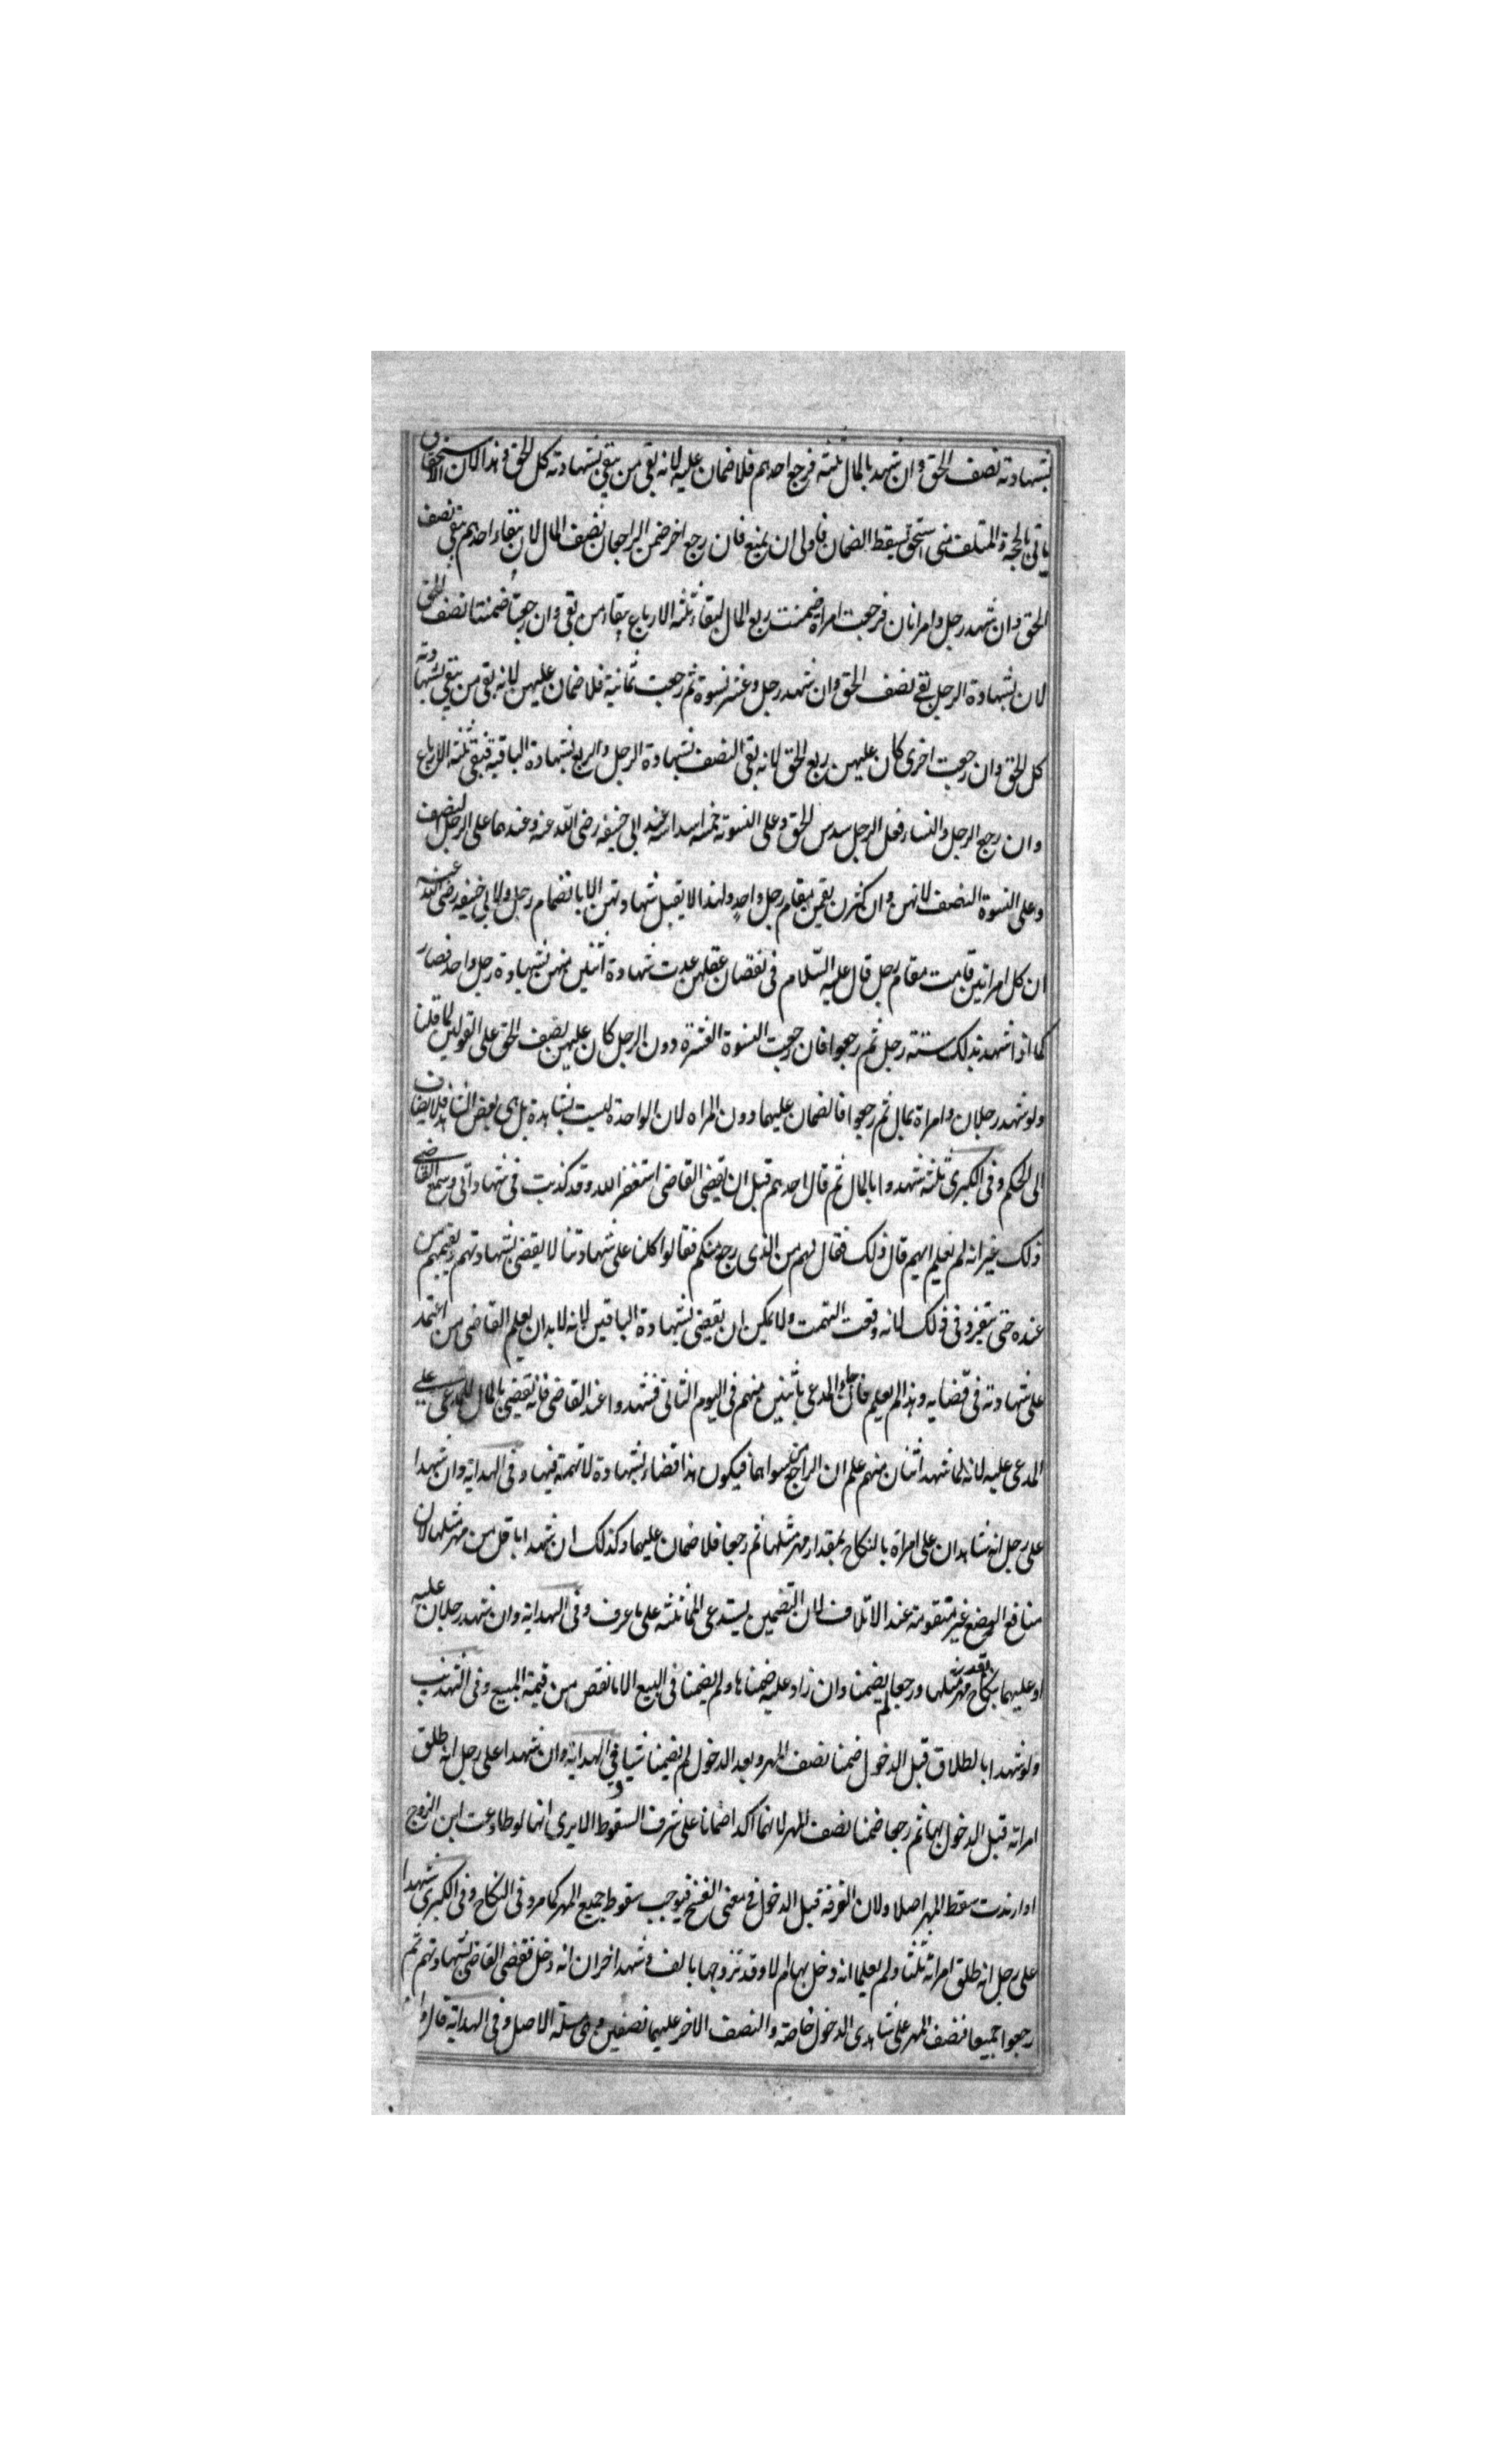 بشهادته نصف الحق وان شهد بالمال ثلثه فرجع احدهم فلا ضمان عليه لانه بقى من يبقى بشهادته كل الحق وهذا لان الاستحقاق
باق بالحجة والمتلف متى استحق يسقط الضمان فاولى ان يمنع فان رجع اخر ضمن الراجعان نصف المال لان ببقاء احدهم يبقى نصف
الحق وان شهد رجل وامراتان فرجعت امراة ضمنت ربع المال لبقاء ثلثة الارباع ببقاء من بقى وان رجعتا ضمنتا نصف الحق
لان بشهادة الرجل بقى نصف الحق وان شهد رجل وعشر نسوة ثم رجعت ثمانية فلا ضمان عليهن لانه بقى من يبقى بشهادته
كل الحق وان رجعت اخرى كان عليهن ربع الحق لانه بقى النصف بشهادة الرجل والربع بشهادة الباقية فبقى ثلثة الارباع
وان رجع الرجل والنساء فعلى الرجل سدس الحق وعلى النسوة خمسة اسداسه عند ابى حنيفه رضى الله عنه وعندهما على الرجل النصف
وعلى النسوة النصف لانهن وان كثرن يقمن مقام رجل واحد ولهذا لا يقبل شهادتهن الا بانضمام رجل ولابى حنيفه رضى الله عنه
ان كل امراتين قامت مقام رجل قال عليه السلام فى نقصان عقلهن عدلت شهادة اثنتين منهن بشهادة رجل واحد فصار
كما اذا شهد بذلك ستة رجل ثم رجعوا فان رجعت النسوة العشرة دون الرجل كان عليهن نصف الحق على القولين لما قلنا
ولو شهد رجلان وامراة بمال ثم رجعوا فالضمان عليهما دون المراه لان الواحدة ليست بشاهدة بل هى بعض الشاهد فلا يضاف
الى الحكم وفى الكبرى ثلثة شهدوا بالمال ثم قال احدهم قبل ان يقضى القاضى استغفر الله وقد كذبت فى شهادتى وسمع القاضى
ذلك غير انه لم يعلم ايهم قال ذلك فقال لهم من الذى رجع منكم فقالوا كلنا على شهادتنا لا يقضى بشهادتهم ويقيمهم من
عنده حتى يتفردوا فى ذلك لانه وقعت التهمت ولا يمكن ان يقضى بشهادة الباقين لانه لابد ان يعلم القاضى من اعتمد
على شهادته فى قضايه وهذا لم يعلم فان جاء المدعى باثنين منهم فى اليوم الثانى فشهدوا عند القاضى فانه يقضى بالمال للمدعى على
المدعى عليه لانه لما شهد اثنان منهم علم ان الراجع من سواهما فيكون هذا قضاء بشهادة لا تهمة فيها وفى الهداية وان شهدا
على رجل انه شاهدان على امراة بالنكاح بمقدار مهر مثلها ثم رجعا فلا ضمان عليهما وكذلك ان شهدا باقل من مهر مثلها لان
منافع البضع غير متقومة عند الاتلاف لان التضمين يستدعى المماثلثه على ما عرف وفى الهداية وان شهد رجلان عليه
او عليهما بنكاح بقدر مهر مثلها ورجعا لم يضمنا وان زاد عليه ضمناها ولم يضمنا فى البيع الا ما نقص من قيمة المبيع وفى التهذيب
ولو شهدا بالطلاق قبل الدخول ضمنا نصف المهر وبعد الدخول لم يضمنا شيا وفى الهداية وان شهدا على رجل انه طلق
امراته قبل الدخول بها ثم رجعا ضمنا نصف المهر لانهما اكدا ضمانا على شرف السقوط الا يرى انها لو طاوعت ابن الزوج
او ارتدت سقط المهر اصلا ولان الفرقة قبل الدخول فى معنى الفسخ فيوجب سقوط جميع المهر كما مر فى النكاح وفى الكبرى شهدا
على رجل انه طلق امراته ثلثا ولم يعلما انه دخل بها ام لا وقد تزوجها بالف وشهد اخران انه دخل فقضى القاضى بشهادتهم ثم
رجعوا جميعا فنصف المهر على شاهدى الدخول خاصة والنصف الاخر عليهما نصفين وهى مسئلة الاصل وفى الهداية قال وان